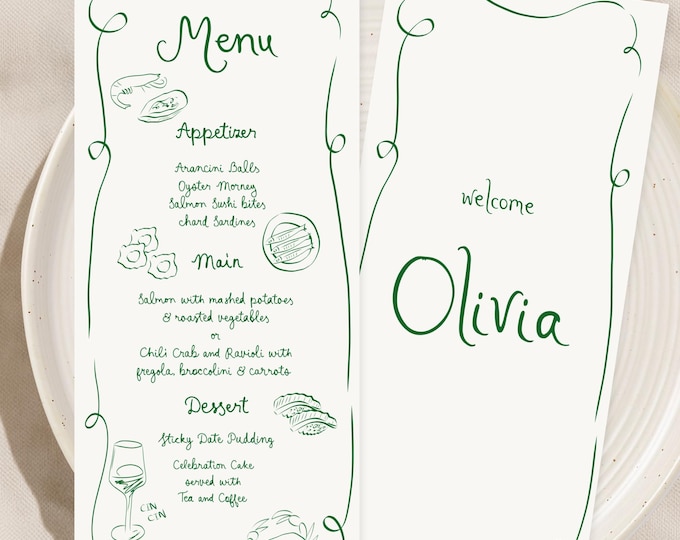 Menu
Appetizer
Arancini Balls
Oyster Morney
Salmon Sushi bites
chard Sardines
Main
Salmon with mashed potatoes
& roasted vegetables
or
Chili Crab and Ravioli with
fregola, broccolini & carrots
Dessert
Sticky Date Pudding
Celebration Cake
served with
Tea and Coffee
CIN
CIN
welcome
Olivia